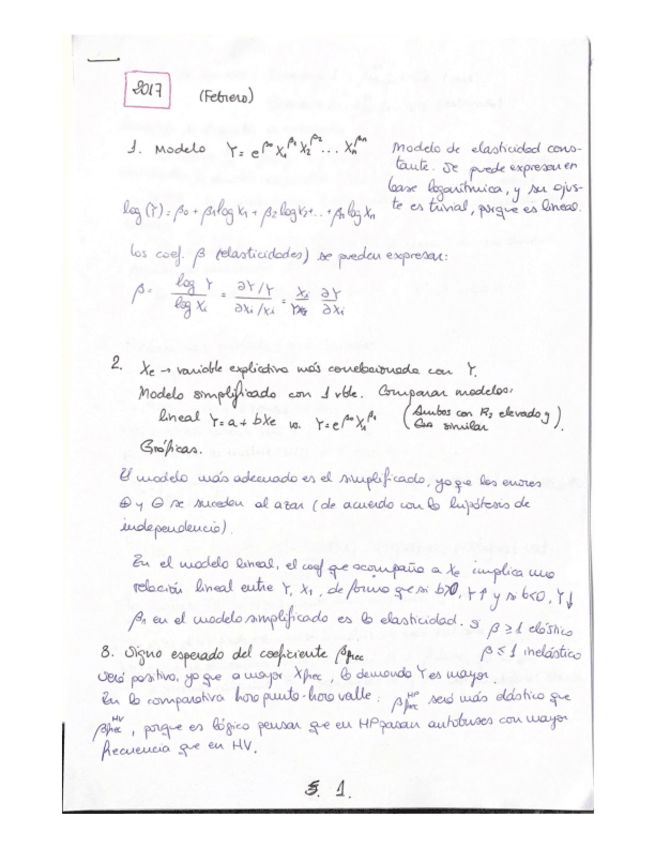 2017 (Febrero)
1. Modelo Y = e^β₀ X₁^β₁ X₂^β₂ ... Xₙ^βₙ
Modelo de elasticidad cons-
tante. Se puede expresar en
base logarítmica, y su ajus-
te es trivial, porque es lineal.
log(Y) = β₀ + β₁ log X₁ + β₂ log X₂ + .. + βₙ log Xₙ
los coef. β (elasticidades) se pueden expresar:
β = log Y / log Xᵢ = ∂Y/Y / ∂Xᵢ/Xᵢ = Xᵢ/Y ∂Y/∂Xᵢ
2. Xe → variable explicativa más correlacionada con Y.
Modelo simplificado con 1 vble. Comparar modelos:
lineal Y = a + bXe vs. Y = e^β₀ X₁^β₁ (Ambos con R₂ elevado y similar).
Gráficas.
El modelo más adecuado es el simplificado, ya que los errores
⊕ y ⊖ se suceden al azar (de acuerdo con la hipótesis de
independencia).
En el modelo lineal, el coef que acompaña a Xe implica una
relación lineal entre Y, X₁, de forma que si b>0, Y↑ y si b<0, Y↓
β₁ en el modelo simplificado es la elasticidad. Si β ≥ 1 elástico
β ≤ 1 inelástico
3. Signo esperado del coeficiente βfrec
Será positivo, ya que a mayor Xfrec, la demanda Y es mayor.
En la comparativa hora punta-hora valle: βfrec^HP será más elástico que
βfrec^HV, porque es lógico pensar que en HP pasan autobuses con mayor
frecuencia que en HV.
1.